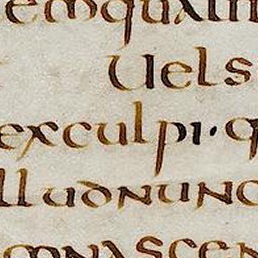 emqualm
uels
exculpi·q
lludnunc
omnascen